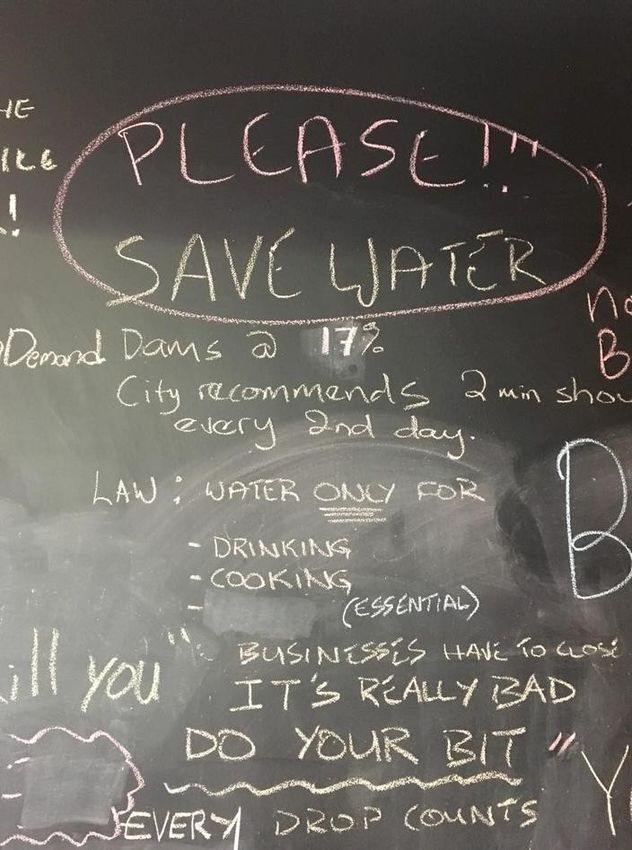 PLEASE!!!
SAVE WATER
Demand Dams @ 17%
City recommends 2 min
every 2nd day.
LAW: WATER ONLY FOR
- DRINKING
- COOKING
- (ESSENTIAL)
BUSINESSES HAVE TO CLOSE
you"
IT'S REALLY BAD
DO YOUR BIT "
EVERY DROP COUNTS